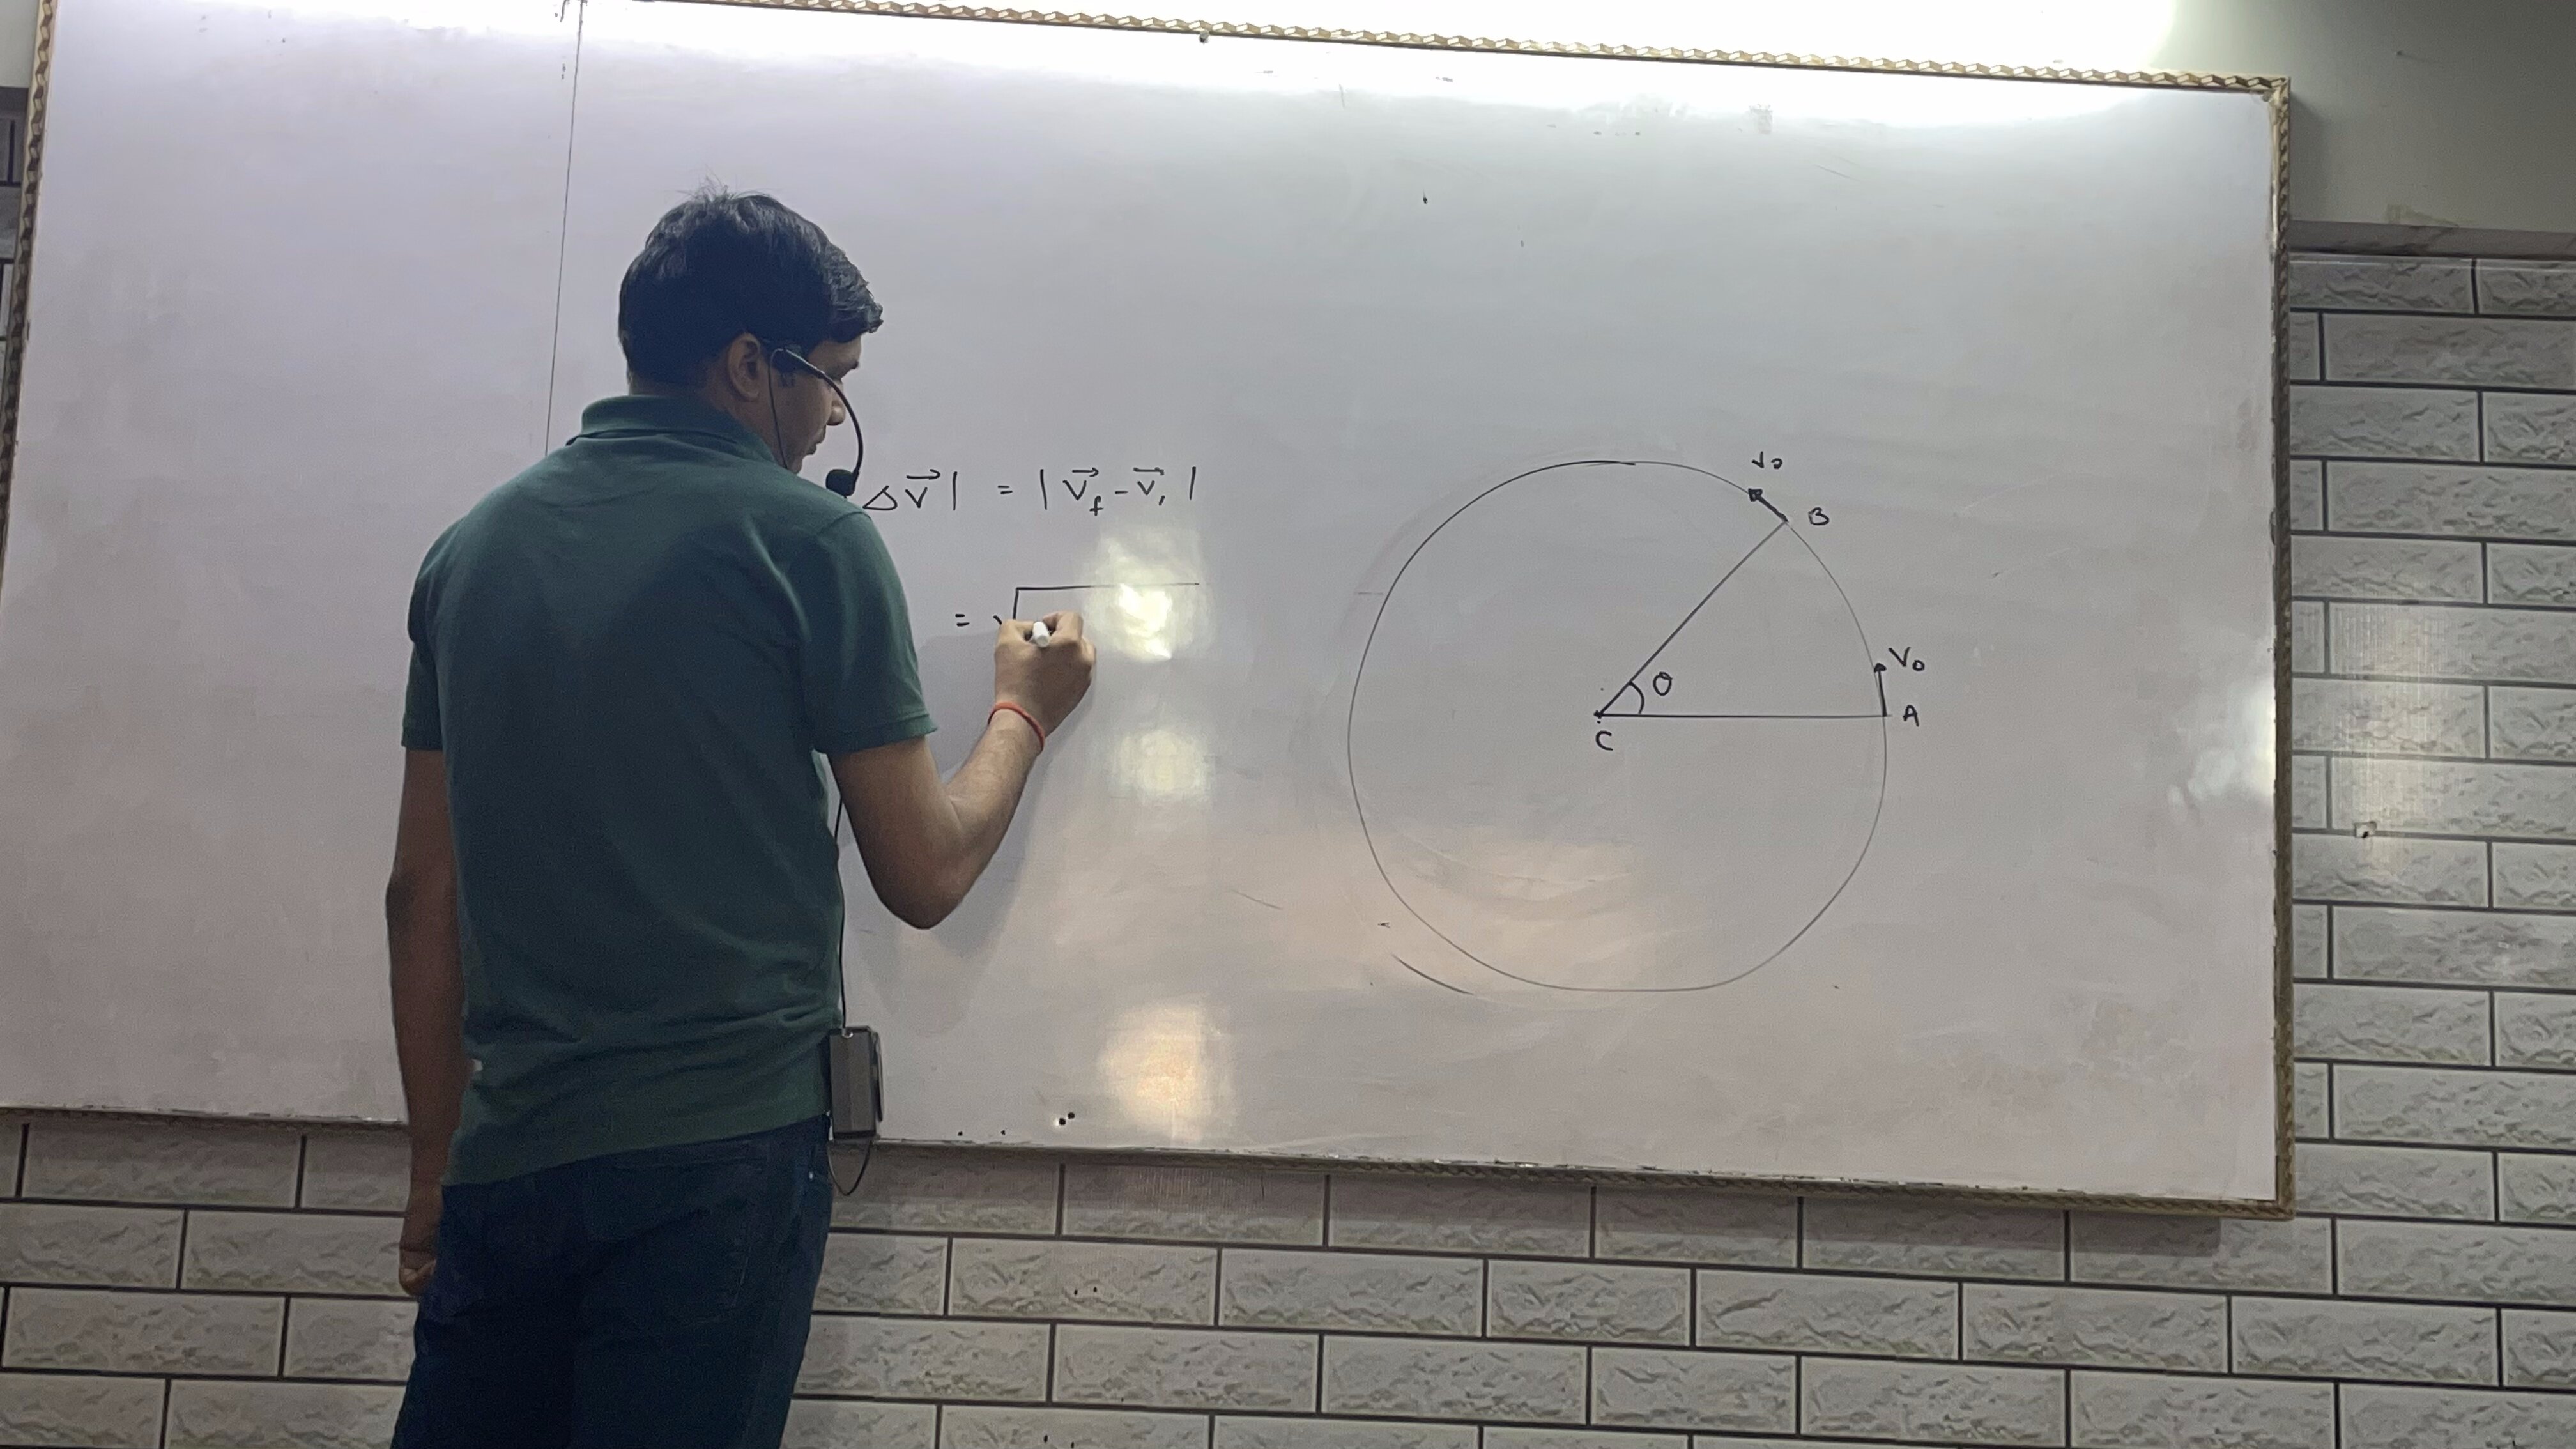 Δv⃗| = |v⃗_f - v⃗_i|
= √
v₀
B
v₀
θ
A
C